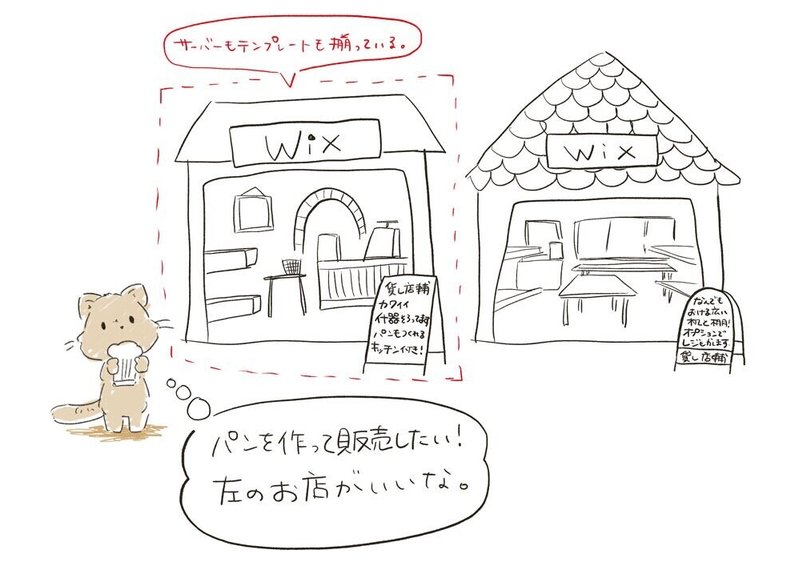 サーバーもテンプレートも揃っている。
Wix
Wix
貸し店舗
カワイイ
什器そろってます
パンもつくれる
キッチン付き!
なんでも
おける広い
オプションで
レジもかします
貸し店舗
パンを作って販売したい!
左のお店がいいな。